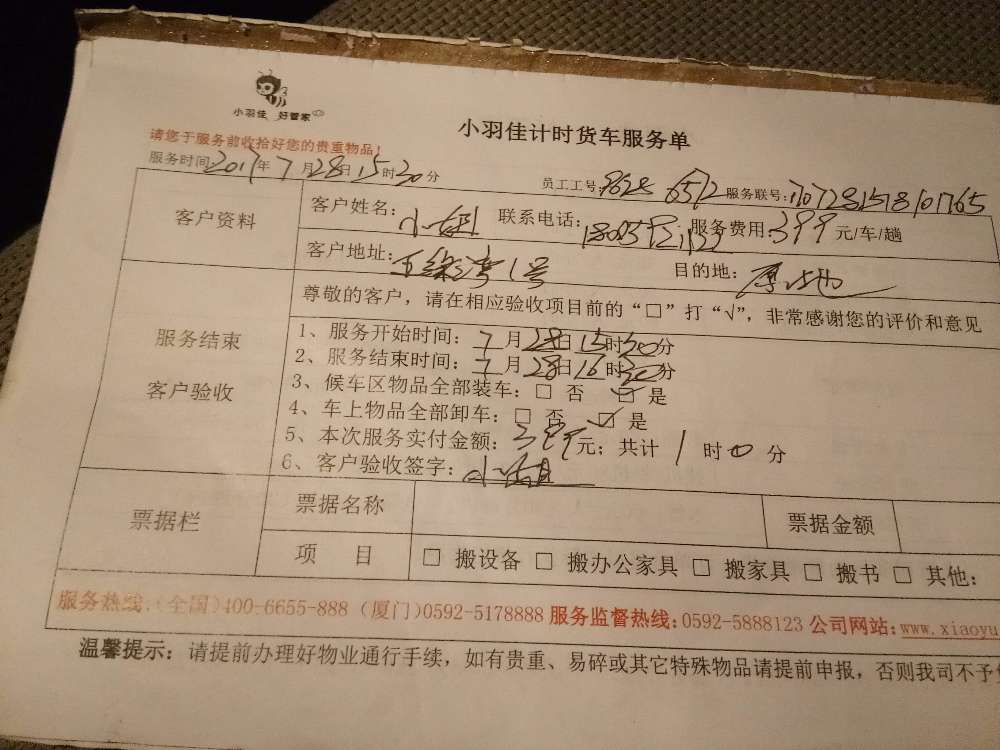 小羽佳 好管家
小羽佳计时货车服务单
请您于服务前收拾好您的贵重物品！
服务时间:2017年7月28日15时30分
员工工号: 服务联号:
客户资料
客户姓名:小姐 联系电话: 服务费用:399元/车/趟
客户地址: 1号 目的地:
服务结束
客户验收
尊敬的客户，请在相应验收项目前的“□”打“√”，非常感谢您的评价和意见
1、服务开始时间：7月28日15时30分
2、服务结束时间：7月28日16时30分
3、候车区物品全部装车：□ 否 ☑ 是
4、车上物品全部卸车：□ 否 ☑ 是
5、本次服务实付金额：399元；共计 1 时 0 分
6、客户验收签字：小姐
票据栏
票据名称 票据金额
项 目 □ 搬设备 □ 搬办公家具 □ 搬家具 □ 搬书 □ 其他：
服务热线:(全国)400-6655-888 (厦门)0592-5178888 服务监督热线:0592-5888123 公司网站:www.xiaoyu
温馨提示：请提前办理好物业通行手续，如有贵重、易碎或其它特殊物品请提前申报，否则我司不予